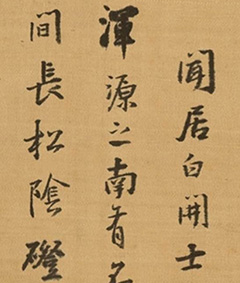 聞居白開士
渾源之南有名
間長松陰磴